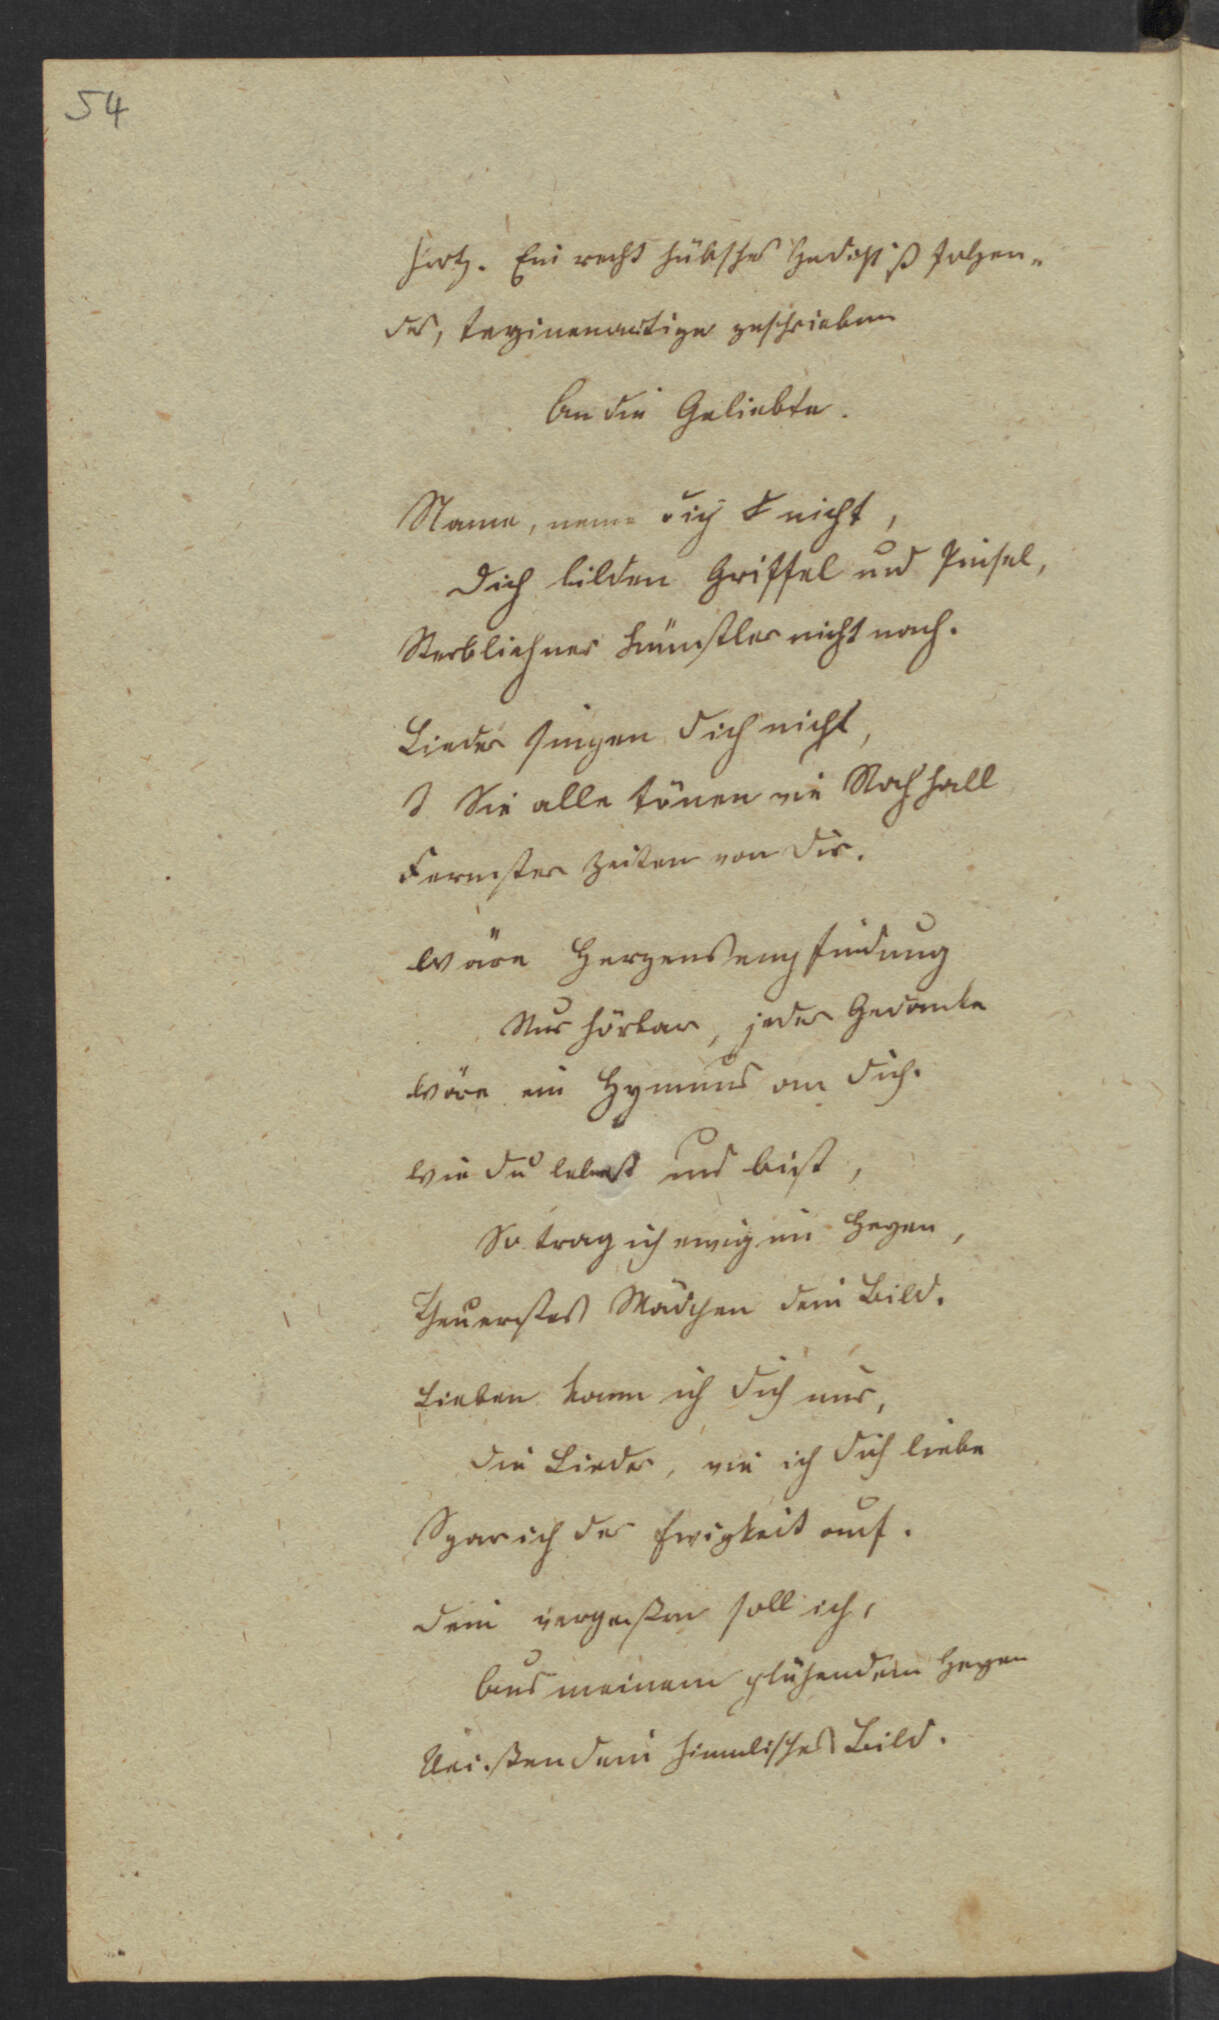 54
hertz. Ein recht hübsches Gedicht ist folgen-
des, terzinenartige geschrieben
An die Geliebte.
Name, nenne dich nicht,
Dich bilden Griffel und Pinsel,
Sterblicher Künstler nicht nach.
Lieder singen dich nicht,
Sie alle tönen wie Nachhall
Fernster Zeiten von dir.
Wäre Herzensempfindung
Nur hörbar, jeder Gedanke
Wäre ein Hymnus an dich.
Wie du lebest und bist,
So trag ich ewig im Herzen,
Theuerstes Mädchen dein Bild.
Lieben kann ich dich nur,
Die Lieder, wie ich dich liebe
Spar ich der Ewigkeit auf.
Dein vergessen soll ich,
Aus meinem glühendem Herzen
Reissen dein himmlisches Bild.